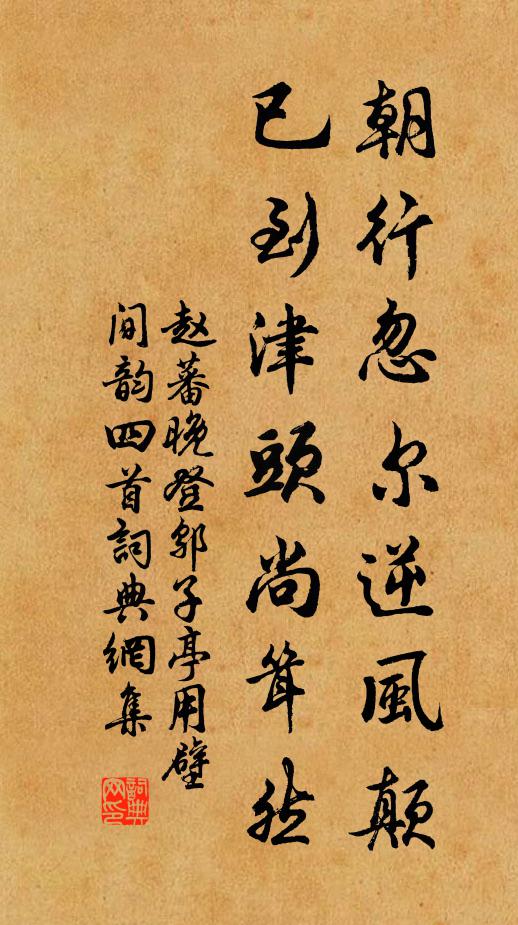 朝行忽尔逆風顛
已到津頭尚聳然
赵蕃晚登鄔子亭用壁
间韵四首詞典網集
詞典
网印